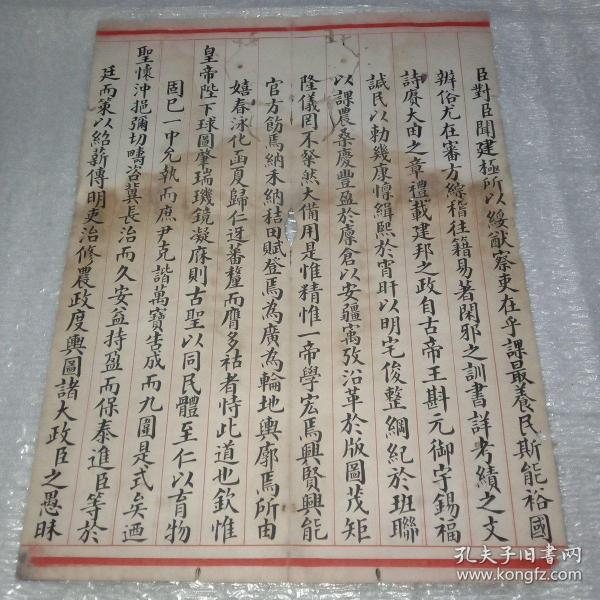 臣對臣聞建極所以綏猷察吏在乎課最養民斯能裕國
辨俗尤在審方綜稽往籍易著閑邪之訓書詳考績之文
詩賡大田之章禮載建邦之政自古帝王斟元御宇錫福
諴民以勅幾康懍緝熙於宵旰以明宅俊整綱紀於班聯
以課農桑慶豐盈於廪倉以安疆㝢攷沿革於版圖茂矩
隆儀罔不粲然大備用是惟精惟一帝學宏焉興賢興能
官方飭焉納禾納秸田賦登焉為廣為輪地輿廓焉所由
嬉春泳化函夏歸仁迓蕃釐而膺多祜者恃此道也欽惟
皇帝陛下球圖肇瑞璣鏡凝庥則古聖以同民體至仁以育物
固已一中允執而庶尹克諧萬寶告成而九圍是式矣迺
聖懷沖挹彌切疇咨冀長治而久安益持盈而保泰進臣等於
廷而策以紹薪傳明吏治修農政度輿圖諸大政臣之愚昧
孔夫子旧书网
www.kongfz.com